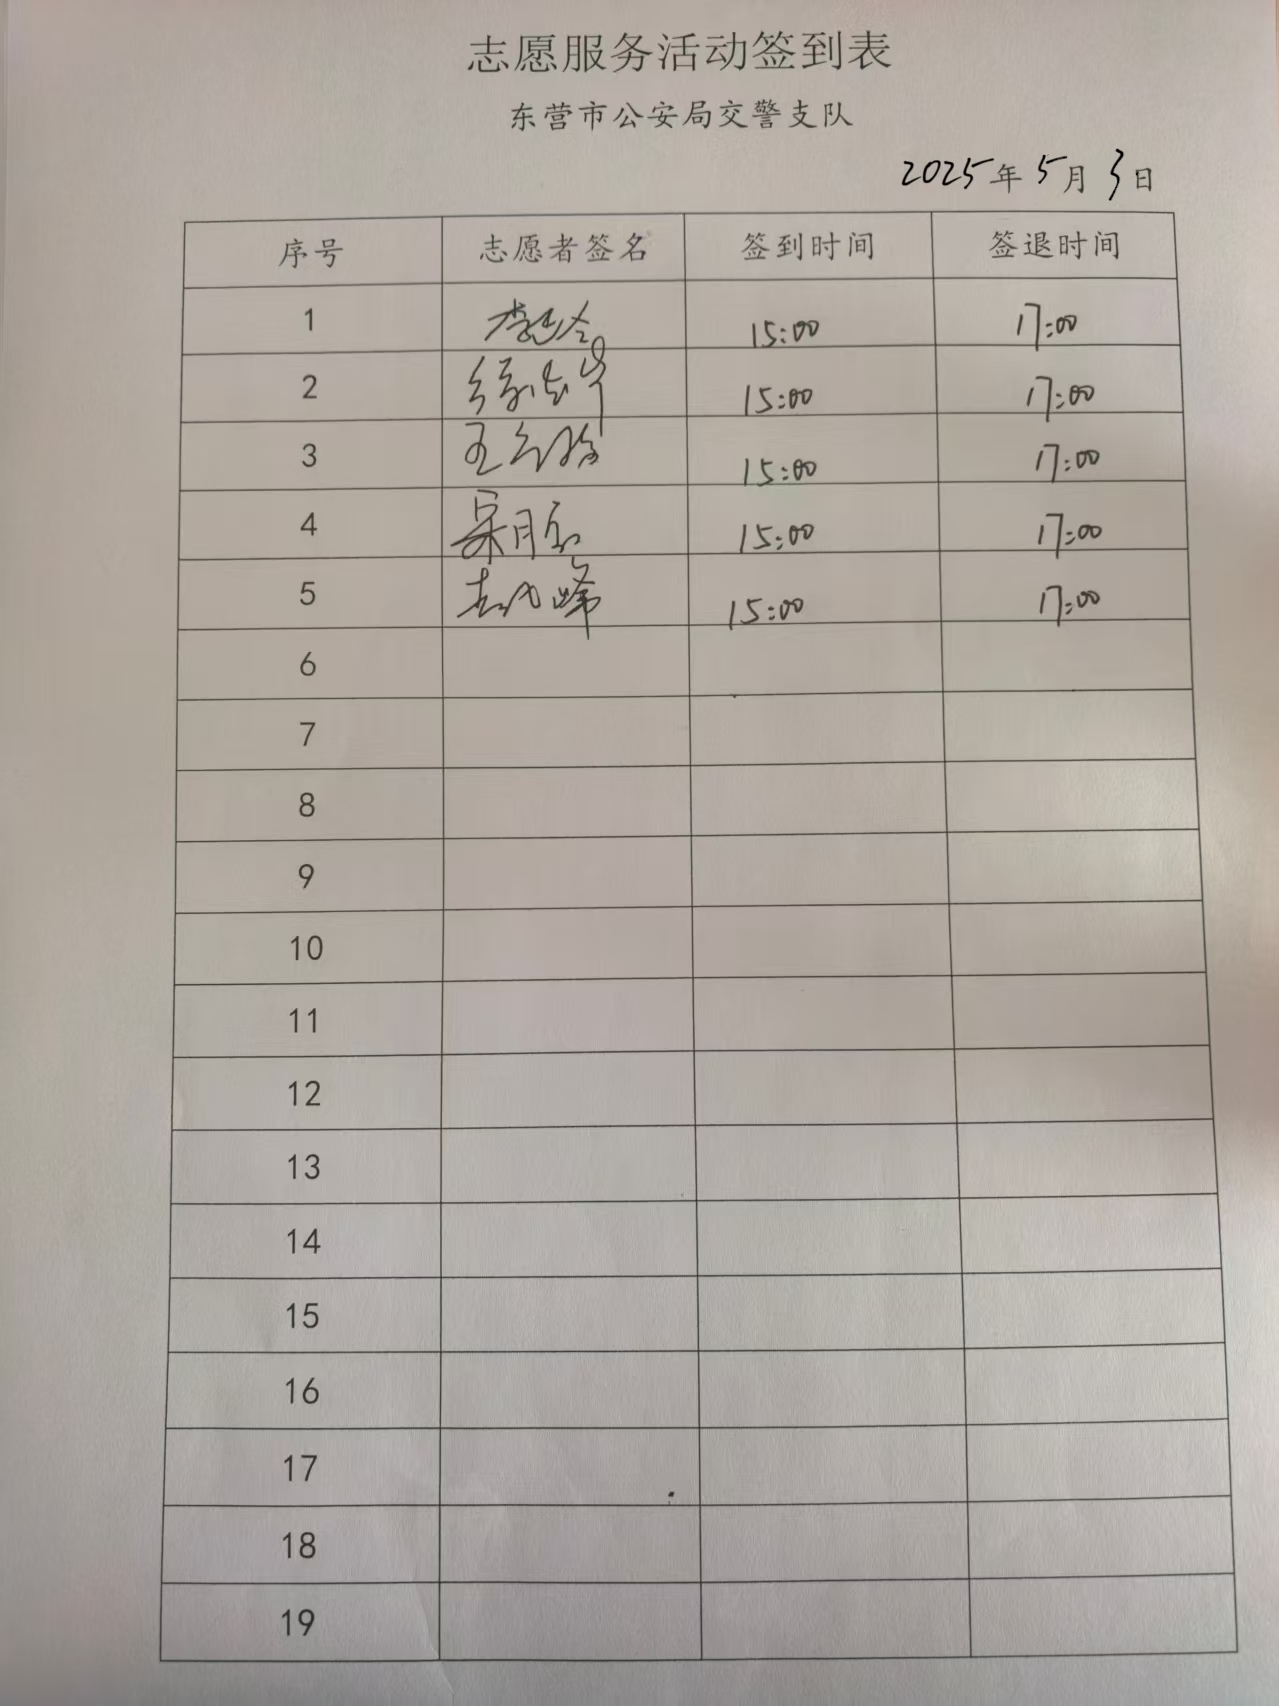 志愿服务活动签到表
东营市公安局交警支队
2025年5月3日
序号 志愿者签名 签到时间 签退时间
1 15:00 17:00
2 15:00 17:00
3 王 15:00 17:00
4 15:00 17:00
5 峰 15:00 17:00
6
7
8
9
10
11
12
13
14
15
16
17
18
19